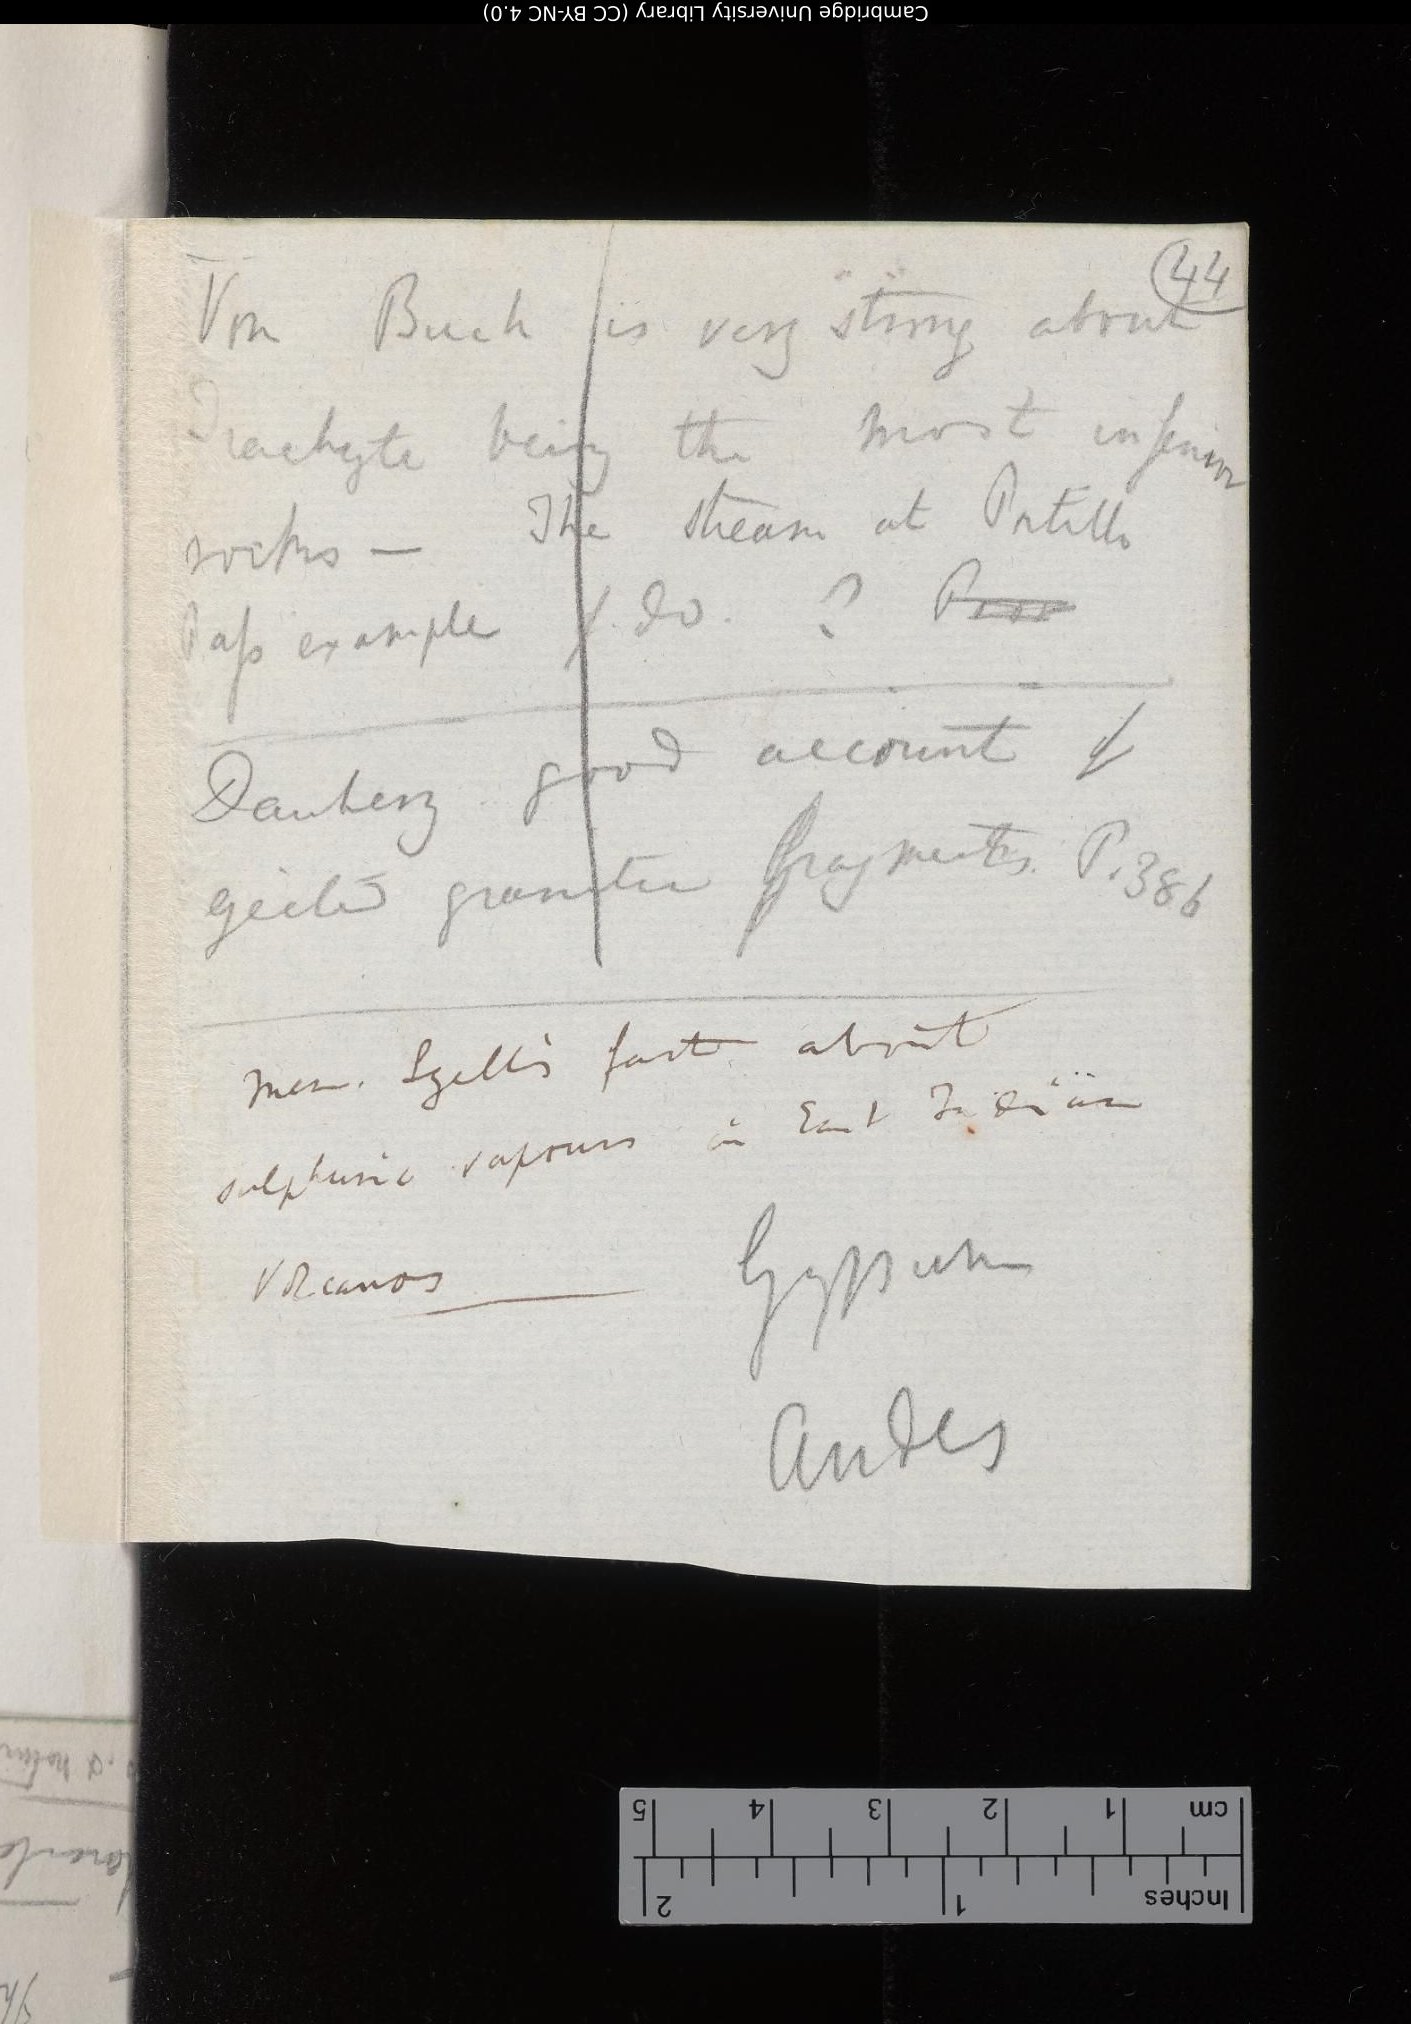 Cambridge University Library (CC BY-NC 4.0)
44
Von Buch is very strong about
Trachyte being the most inferior
rocks — The stream at Portillo
Pass example of do. ? Pass
Daubeny good account of
ejected granitic fragments. P. 386
Mem. Lyell's fact about
sulphuric vapours in East Indian
Volcanos
Gypsum
Andes
cm 1 2 3 4 5
Inches 1 2